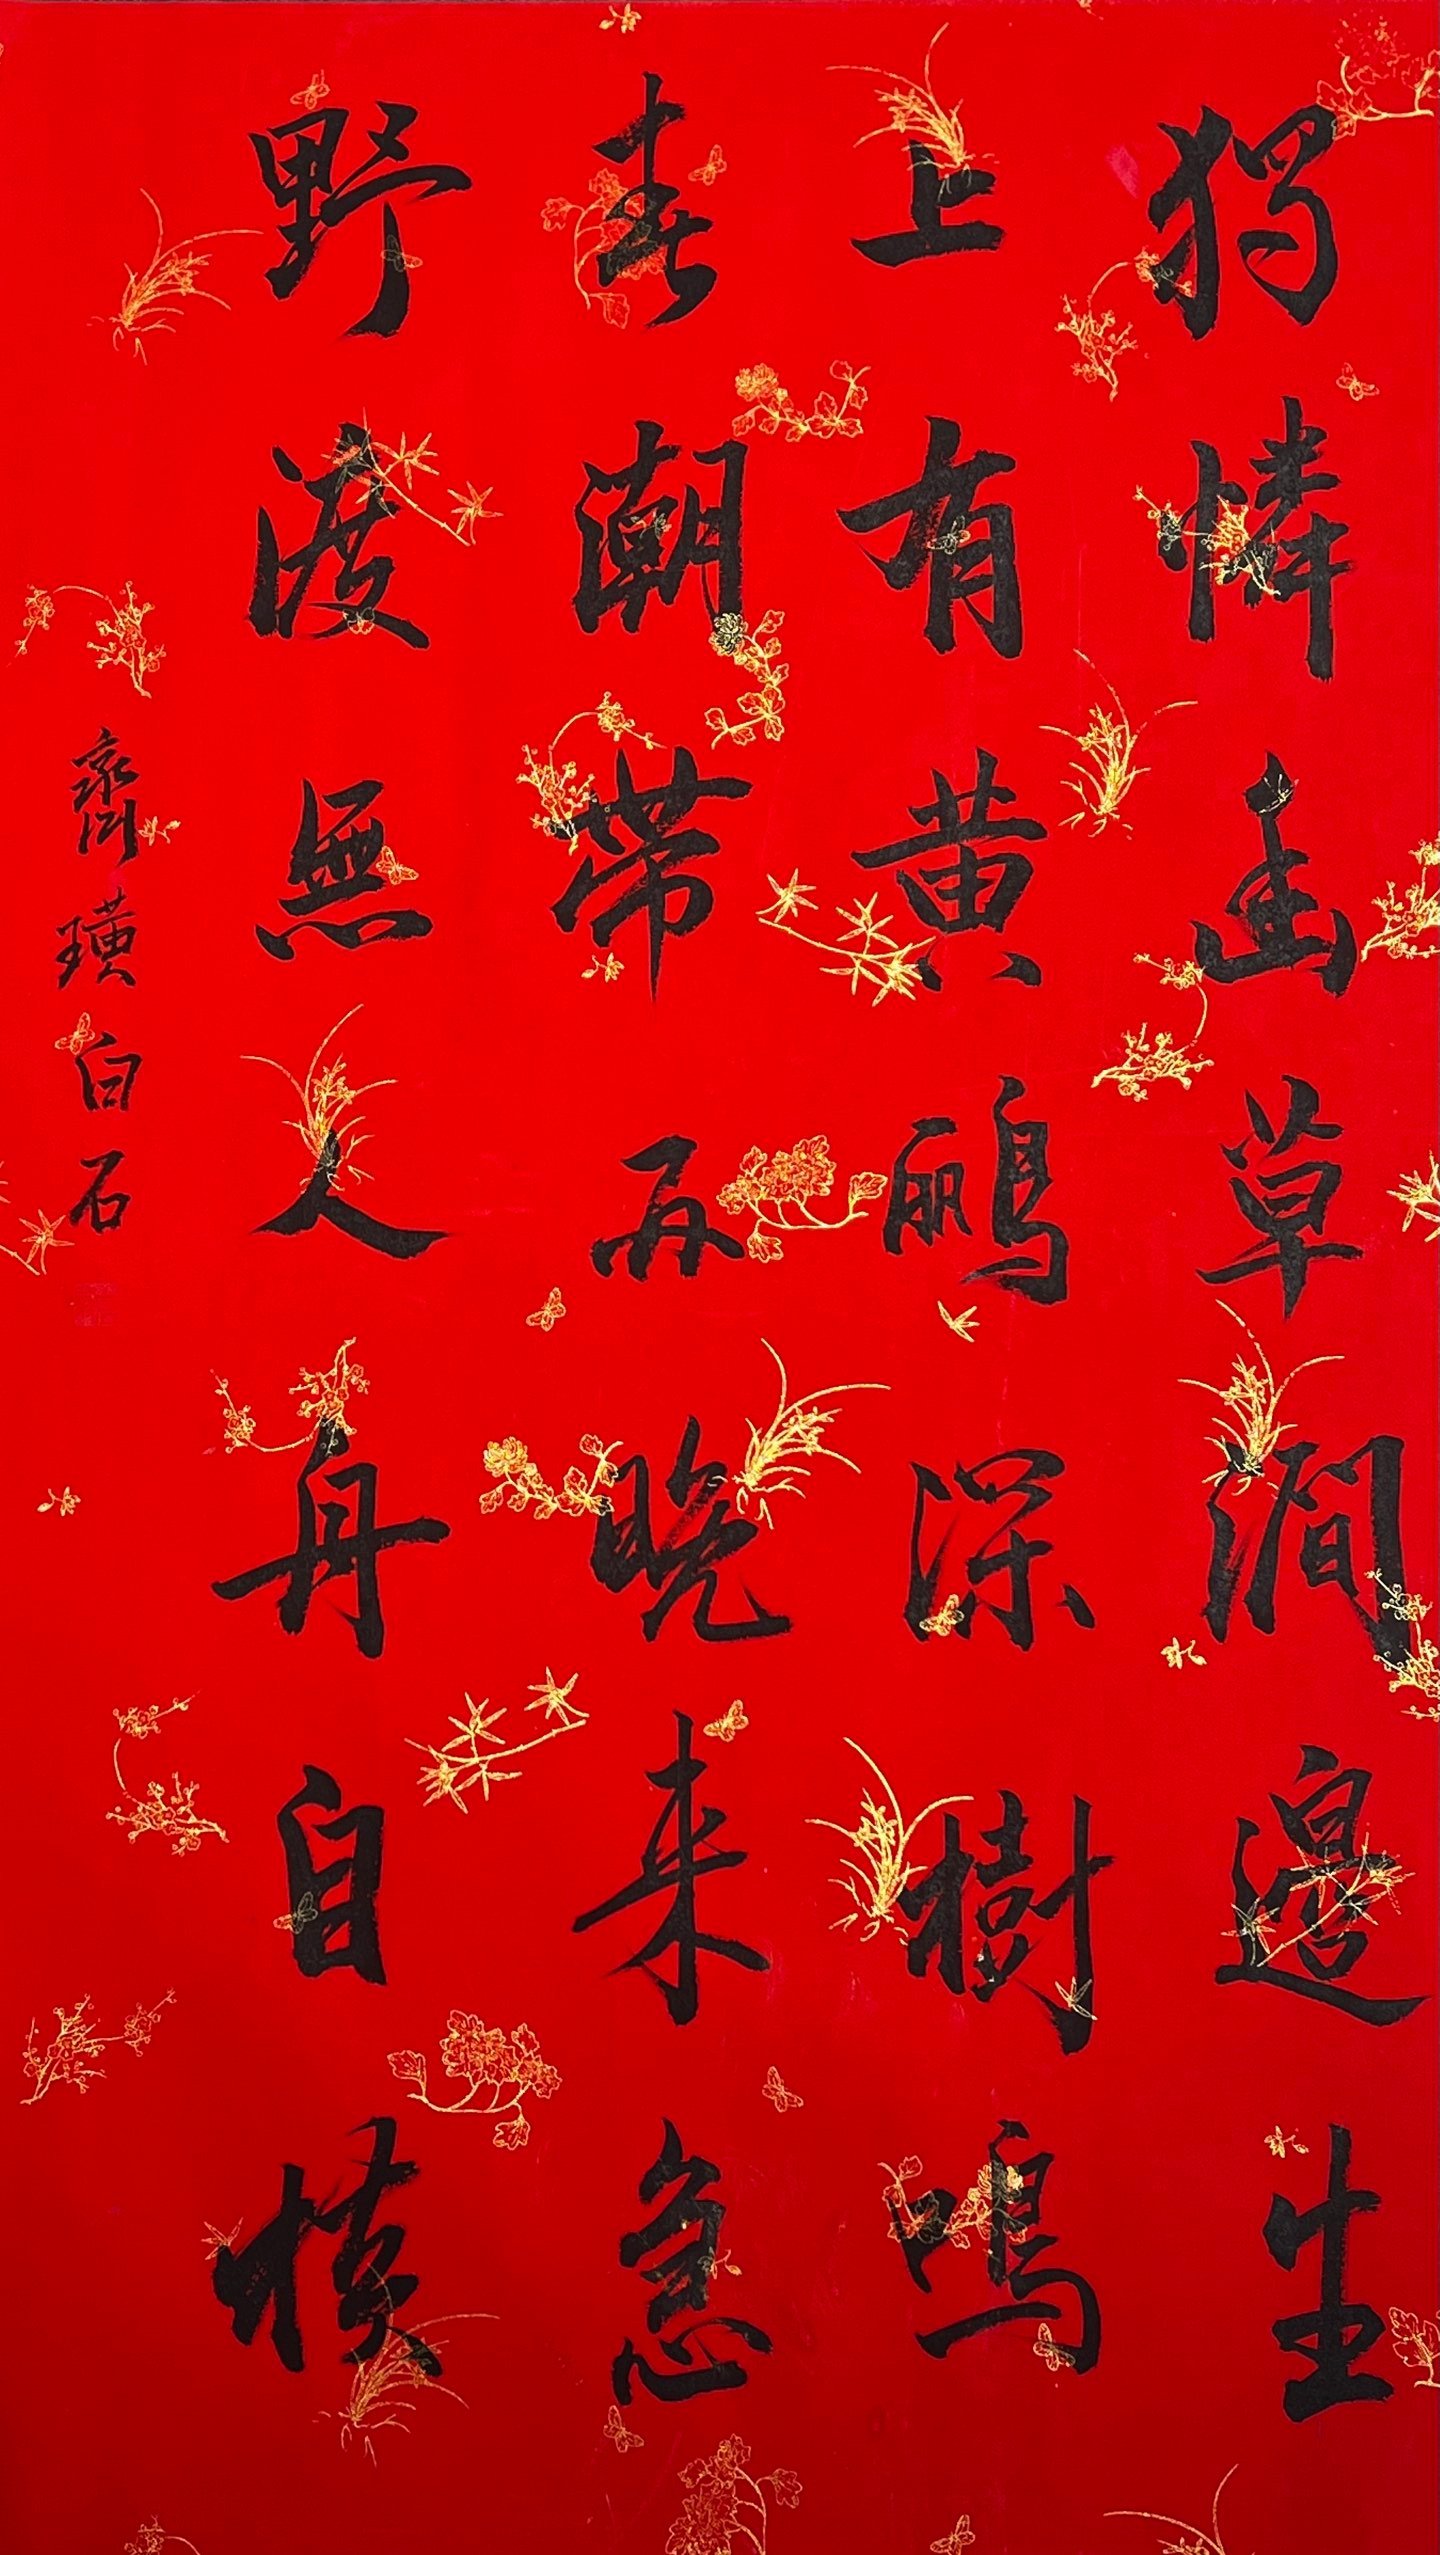 獨憐幽草澗邊生
上有黄鸝深樹鳴
春潮帶雨晚来急
野渡無人舟自横
齊璜白石